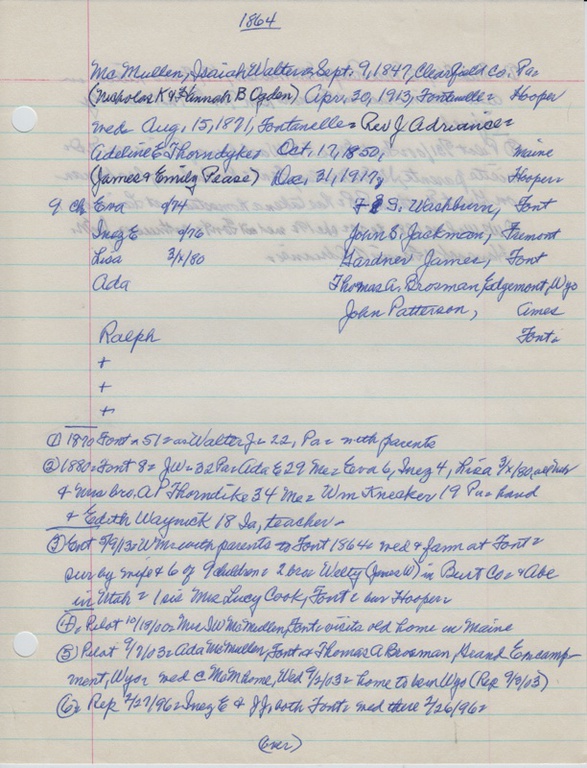 1864
Mc Mullen, Isaiah Walter = Sept. 9, 1847, Clearfield Co. Pa =
(Nicholas K & Hannah B Ogden) Apr. 30, 1913, Fontanelle = Hooper
wed = Aug. 15, 1871, Fontanelle = Rev J Adriance =
Adeline E Thorndyke = Oct. 17, 1850, Maine
(James & Emily Pease) Dec. 31, 1917, Hooper =
9 ch Eva 9/74 F S. Washburn, Font
Inez E 9/76 John S. Jackman, Fremont
Lisa 3/x/80 Gardner James, Font
Ada Thomas A. Brosman, Edgemont, Wyo
John Patterson, Ames
Ralph Font =
+
+
+
① 1870 Font = 51 = as Walter J = 22, Pa = with parents
② 1880 = Font 8 = J W = 32 Pa = Ada E 29 Me = Eva 6, Inez 4, Lisa 3/x/80, all Neb
& wms bro. A P Thorndike 34 Me = Wm Kneaker 19 Pa = hand
& Edith Waynick 18 Ia, teacher =
③ Ent 5/9/13 = W Mc = with parents to Font 1864 = wed & farm at Font =
sur by wife & 6 of 9 children = 2 bro = Welty (James W) in Burt Co = & Abe
in Utah = 1 sis Mrs Lucy Cook, Font = bur Hooper =
④ = Pilot 10/18/00 = Mrs I W McMullen, Font = visits old home in Maine
⑤ Pilot 9/2/03 = Ada McMullen, Font & Thomas A Brosman, Grand Encamp-
ment, Wyo = wed @ McM home, Wed 9/2/03 = home to be in Wyo (Rep 9/9/03)
⑥ = Rep 2/27/96 = Inez E & J J, both Font = wed there 2/26/96 =
(over)